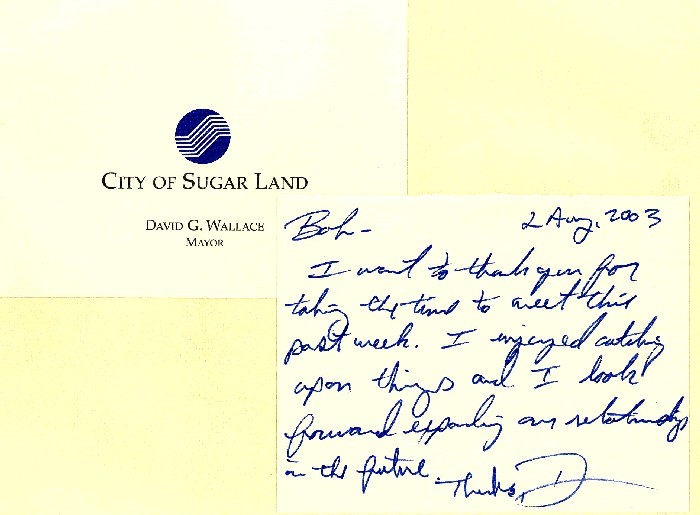 CITY OF SUGAR LAND
DAVID G. WALLACE
MAYOR
Bob-
2 Aug, 2003
I want to thank you for
taking the time to meet this
past week. I enjoyed catching
upon things and I look
forward expanding our relationship
in the future.
Thanks, D